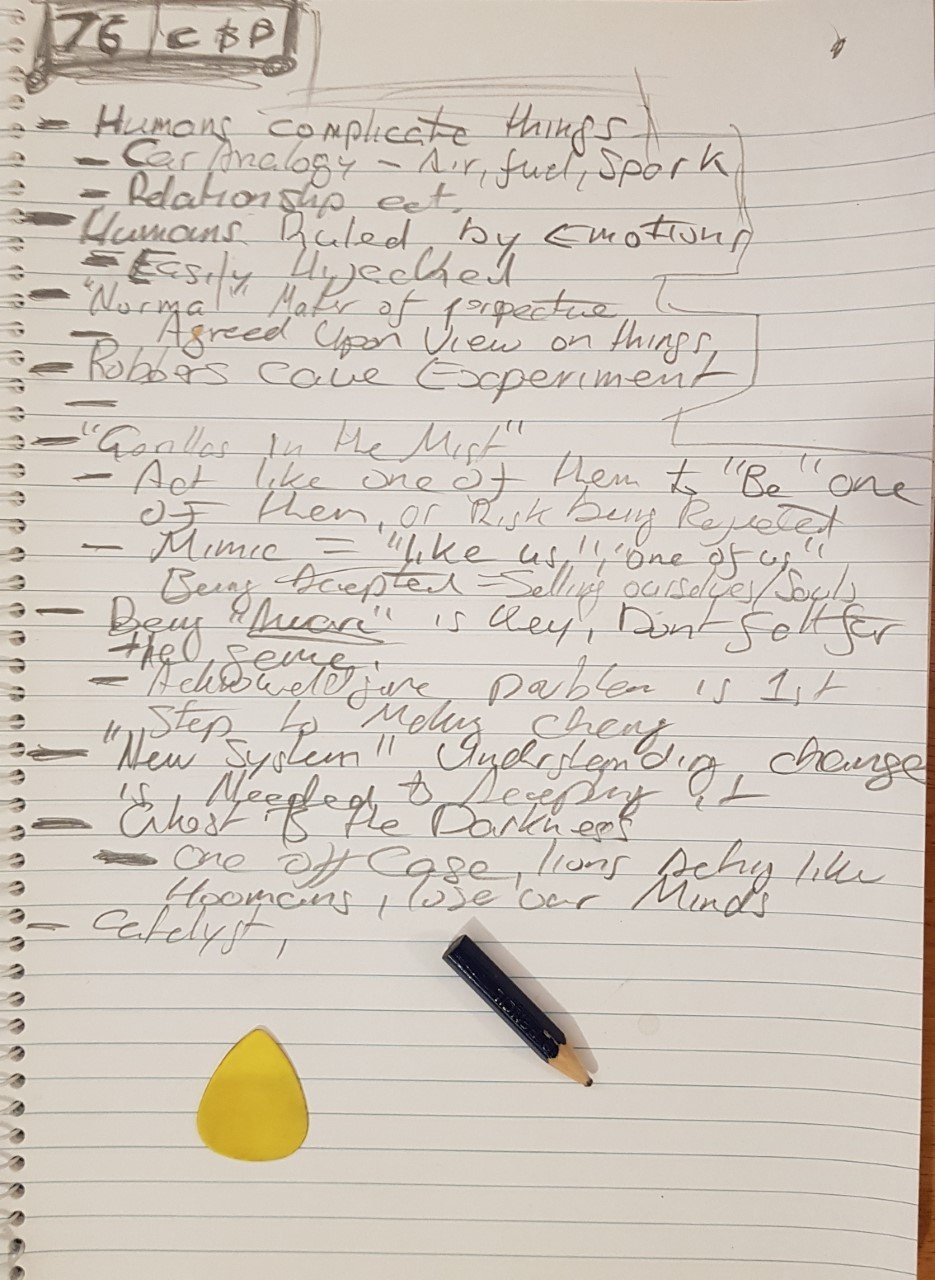 76 C $ P
- Humans complicate things
- Car Analogy - Air, fuel, Spark
- Relationship ect.
- Humans Ruled by Emotions
- Easily Hijecked
- "Normal" Mater of perspective
- Agreed Upon View on things,
- Robbers Cave Experiment
-
- "Gorillas In the Mist"
- Act like one of them to "Be" one
of them, or Risk being Rejected
- Mimic = "like us", "one of us"
Being Accepted = Selling ourselves/Souls
- Being "Aware" is Key, Dont fall for
the game.
- problem is 1st
Step to
- "New System" Understanding, change
is Needed to
- Ghost & the Darkness
- One off Case, lions Acting like
Hoomans, lose our Minds
- Catalyst,